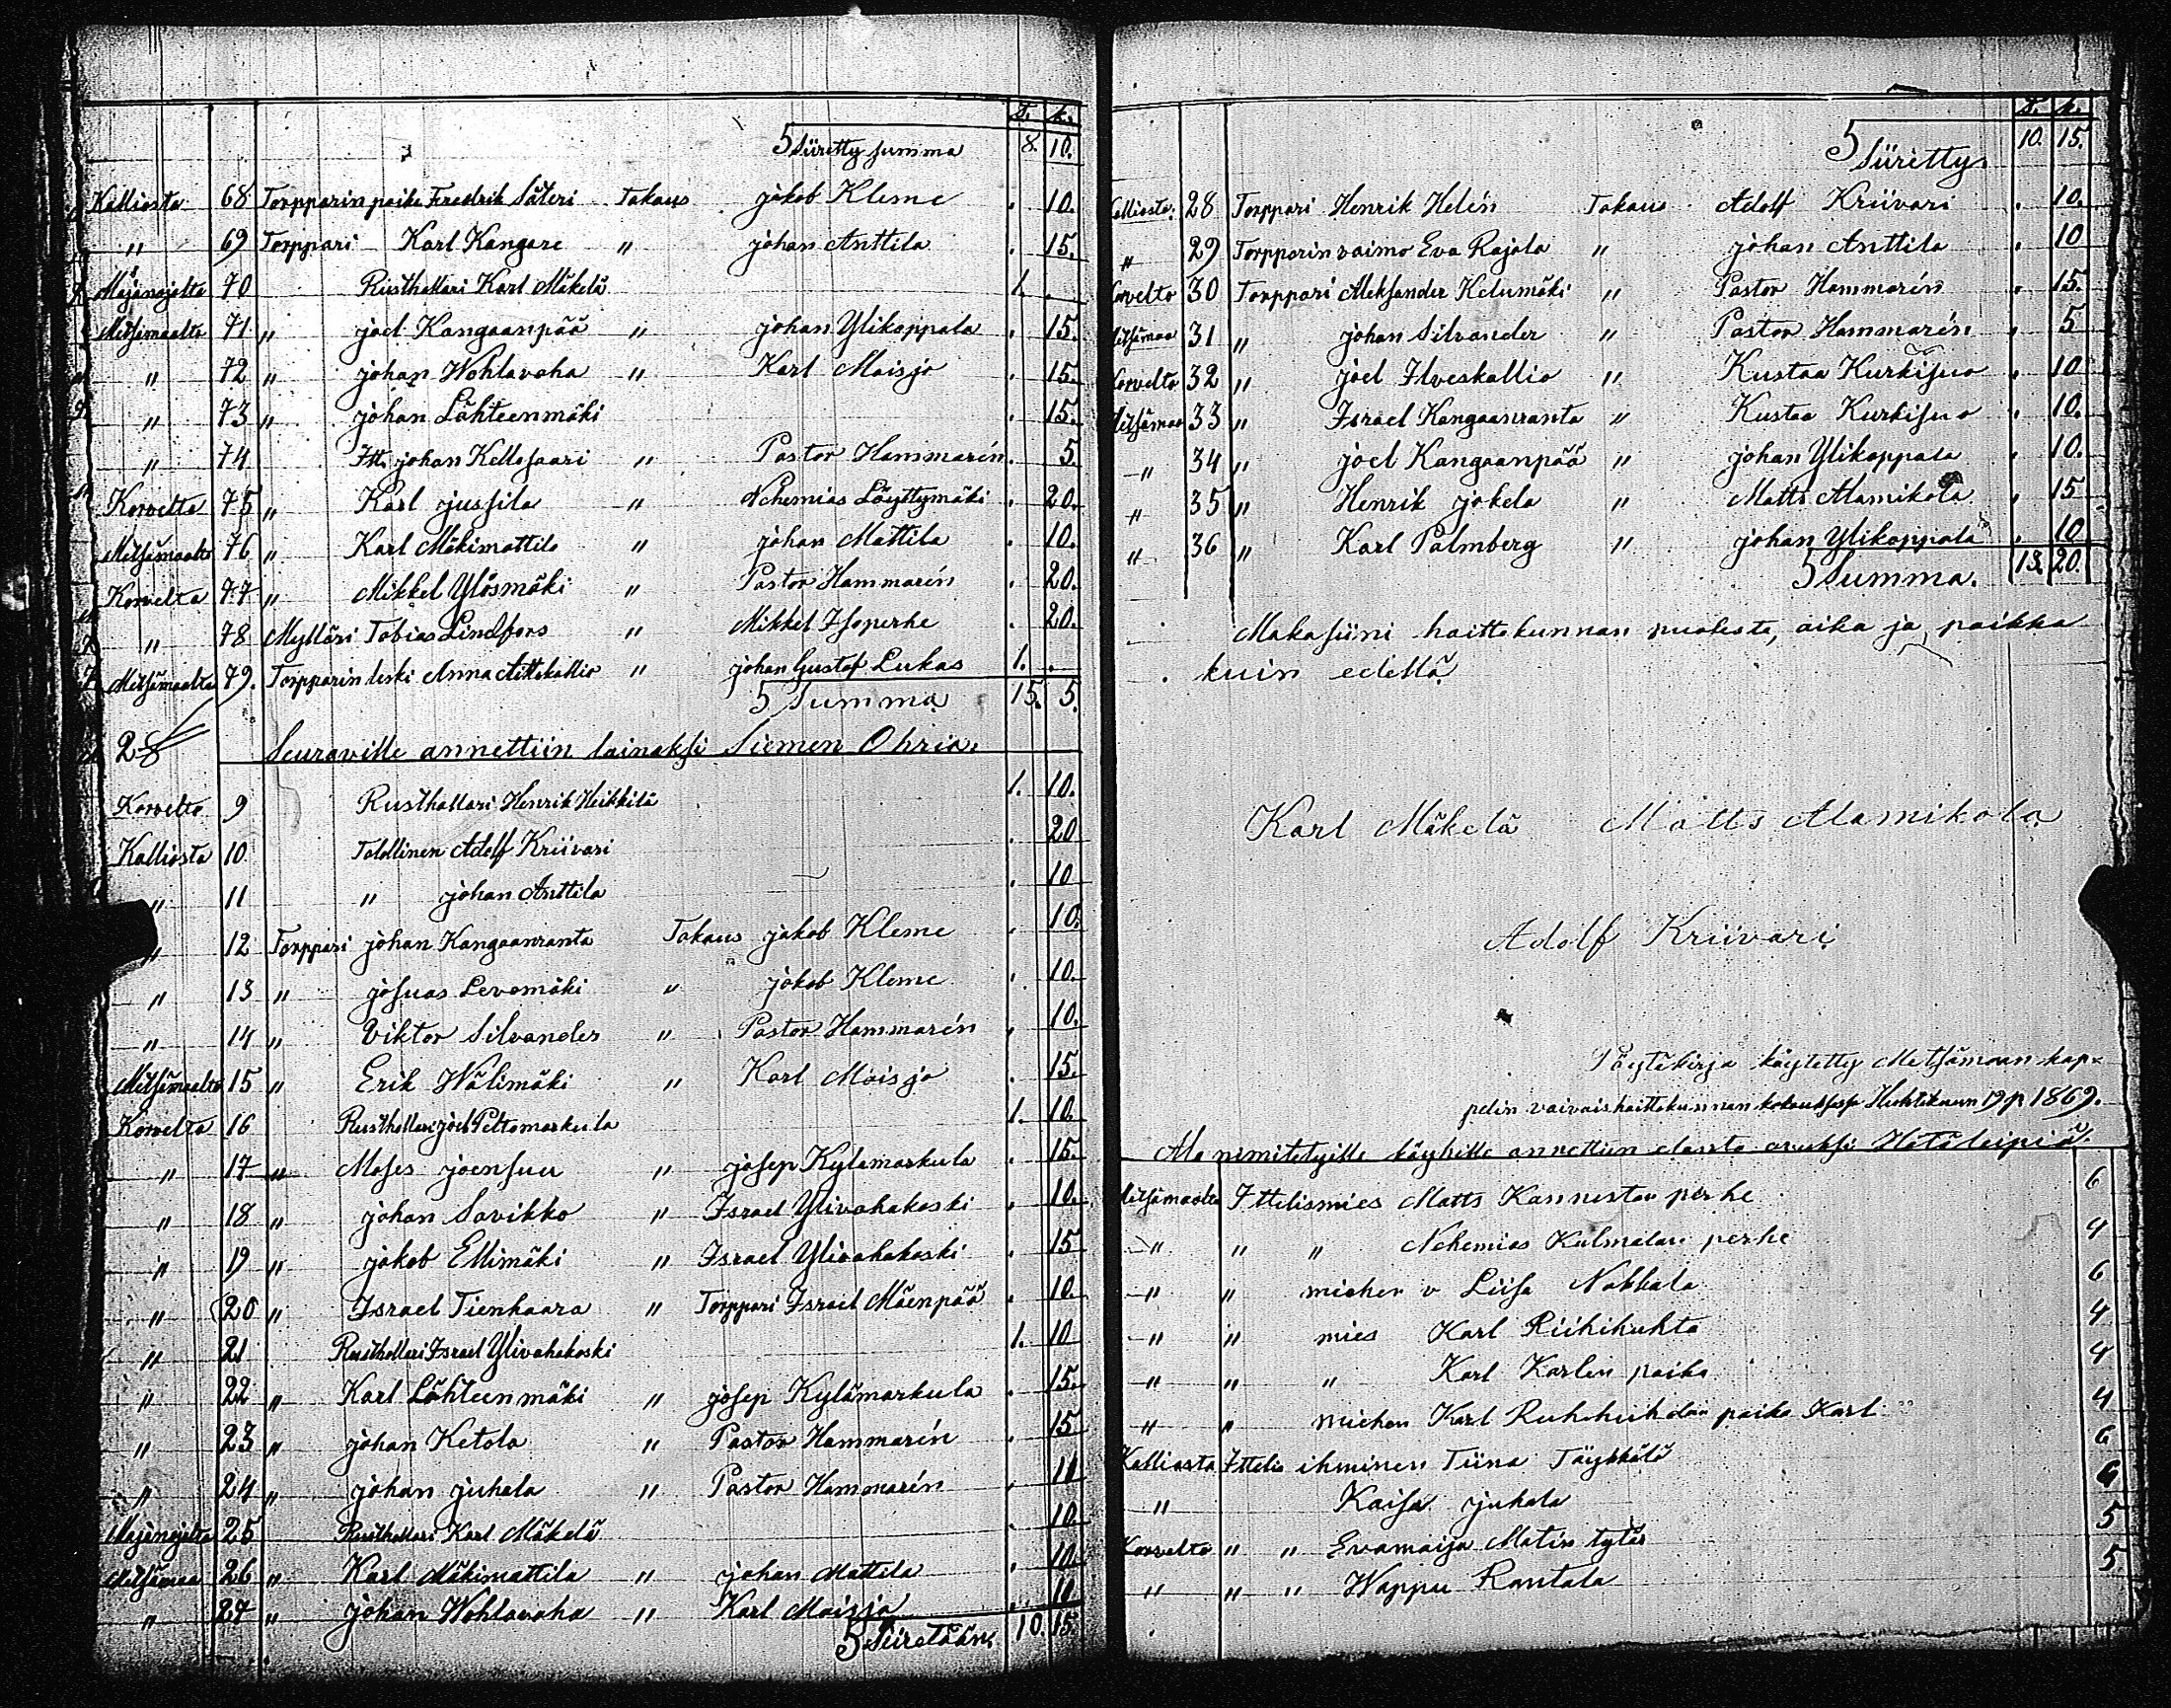 T. k.
S Siiretty summa 8. 10.
Kalliosta 68 Torpparin poika Fredrik Säteri Takaus jakob Kleme . 10.
" 69 Torppari Karl Kangare " johan Anttila . 15.
Majanojalta 70 Rusthollari Karl Mäkelä 1. .
Metsämaalta 71 " joel Kangaanpää " johan Ylikoppala . 15.
" 72 " johan Wohlavaha " Karl Moisjo . 15.
" 73 " johan Lähteenmäki . 15.
" 74 Itt. johan Kellosaari " Pastor Hammarén . 5.
Korvelta 75 " Karl jussila " Nehemias Löyttymäki . 20.
Metsämaalta 76 " Karl Mäkimattila " johan Mattila . 10.
Korvelta 77 " Mikkel Ylösmäki " Pastor Hammarén . 20.
" 78 Mylläri Tobias Lindfors " Mikkel Isoperhe . 20.
Metsämaalta 79. Torpparin leski Anna Aittakallio " johan Gustaf Lukas 1. .
S Summa 15. 5.
Seuraville annettiin lainaksi Siemen Ohria.
Korvelta 9 Rusthollari Henrik Heikkilä 1. 10.
Kalliosta 10 Talollinen Adolf Kriivari . 20
" 11 " johan Anttila . 10
" 12 Torppari johan Kangaanranta Takaus jakob Kleme . 10.
" 13 " josuas Levomäki " jakob Kleme . 10.
" 14 " Viktor Silvander " Pastor Hammarén . 10.
Metsämaalta 15 " Erik Wälimäki " Karl Moisjo . 15.
Korvelta 16 Rusthollari joel Peltomarkula 1. 10.
" 17 " Moses joensuu " josep Kylämarkula . 15.
" 18 " johan Savikko " Israel Ylivahakoski . 10.
" 19 " jakob Ellimäki " Israel Ylivahakoski . 15
" 20 " Israel Tienhaara " Torppari Israel Mäenpää . 10.
" 21 Rusthollari Israel Ylivahakoski 1. 10
" 22 " Karl Lähteenmäki " josep Kylämarkula . 15.
" 23 " johan Ketola " Pastor Hammarén . 15
" 24 " johan juhala " Pastor Hammarén . 10
Majanojalta 25 Rusthollari Karl Mäkelä . 10.
Metsämaa 26 " Karl Mäkimattila " johan Mattila . 10.
" 27 " johan Wohlavaha " Karl Moisjo . 10
S Siiretään 10. 15.
T. k.
S Siiretty 10. 15.
Kalliosta 28 Torppari Henrik Helén Takaus Adolf Kriivari . 10.
" 29 Torpparin vaimo Eva Rajala " johan Anttila . 10
Korvelta 30 Torppari Aleksander Ketumäki " Pastor Hammarén . 15.
Metsämaa 31 " johan Silvander " Pastor Hammarén . 5
Korvelta 32 " joel Ilveskallio " Kustaa Kurkisuo . 10
Metsämaa 33 " Israel Kangaanranta " Kustaa Kurkisuo . 10.
" 34 " joel Kangaanpää " johan Ylikoppala . 10.
" 35 " Henrik jokela " Matts Alamikola . 15
" 36 " Karl Palmberg " johan Ylikoppala . 10
S Summa. 13. 20.
Makasiini haittakunnan puolesta, aika ja paikka
kuin edellä
Karl Mäkelä Matts Alamikola
Adolf Kriivari
Pöytäkirja käytetty Metsämaan kap=
pelin vaivaishoittokunnan kokouksessa Huhtikuun 19 p. 1869.
Ala nimitetyille köyhille annettiin elanto avuksi Hätäleipiä.
Metsämaalta Ittelismies Matts Kanneston perhe 6
" " " Nehemias Kulmalan perhe 4
" " miehen v Liisa Nakkala 6
" " mies Karl Riihihuhta 4
" " " Karl Karlen poika 4
" " miehen Karl poika Karl 4
Kalliosta Ittelis ihminen Tiina Töykkälä 6
" Kaisa juhala 6
Korvelta " " Evamaija Matin tytär 5
" " " Wappu Rantala 5.